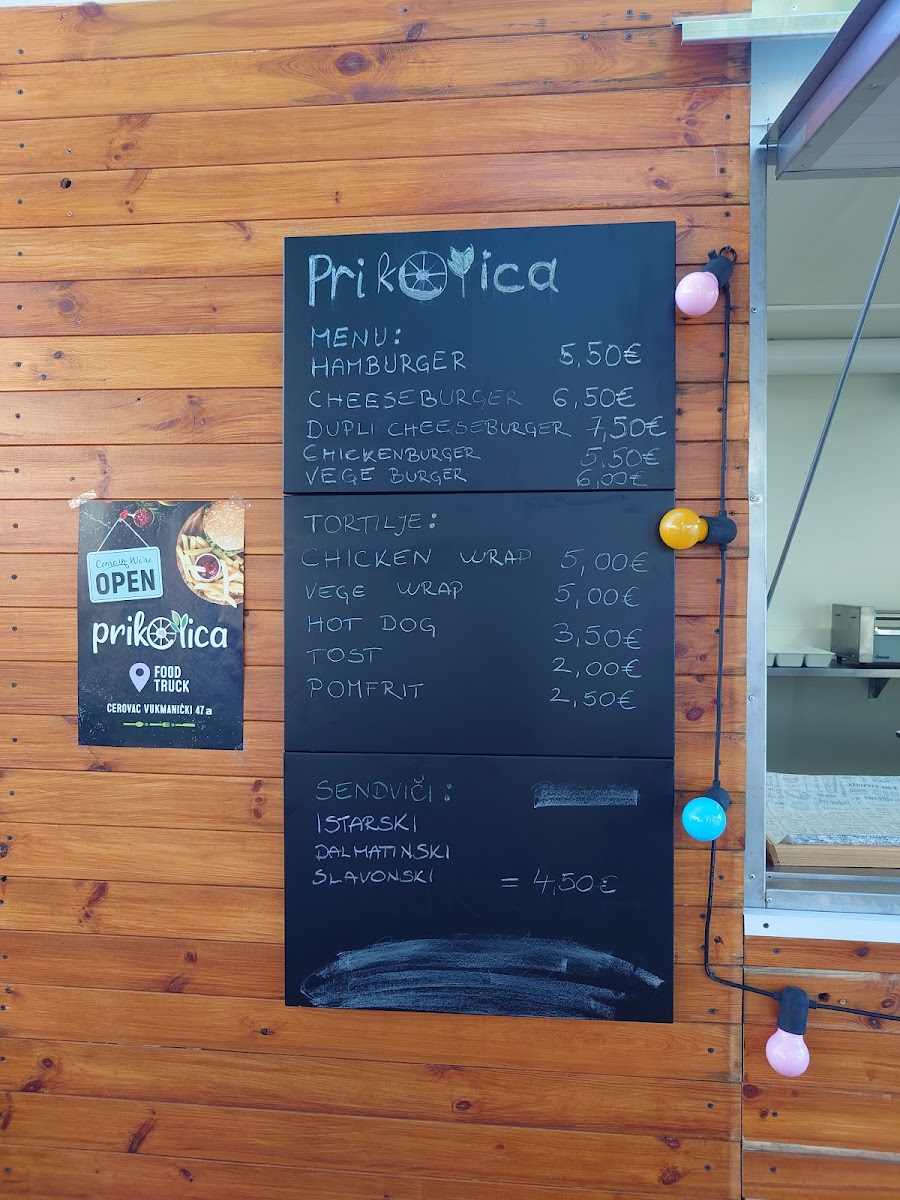 Prikolica
MENU:
HAMBURGER 5,50€
CHEESEBURGER 6,50€
DUPLI CHEESEBURGER 7,50€
CHICKENBURGER 5,50€
VEGE BURGER 6,00€
TORTILJE:
CHICKEN WRAP 5,00€
VEGE WRAP 5,00€
HOT DOG 3,50€
TOST 2,00€
POMFRIT 2,50€
SENDVIČI:
ISTARSKI
DALMATINSKI
SLAVONSKI = 4,50€
Come in We're
OPEN
prikolica
FOOD
TRUCK
CEROVAC VUKMANIČKI 47a